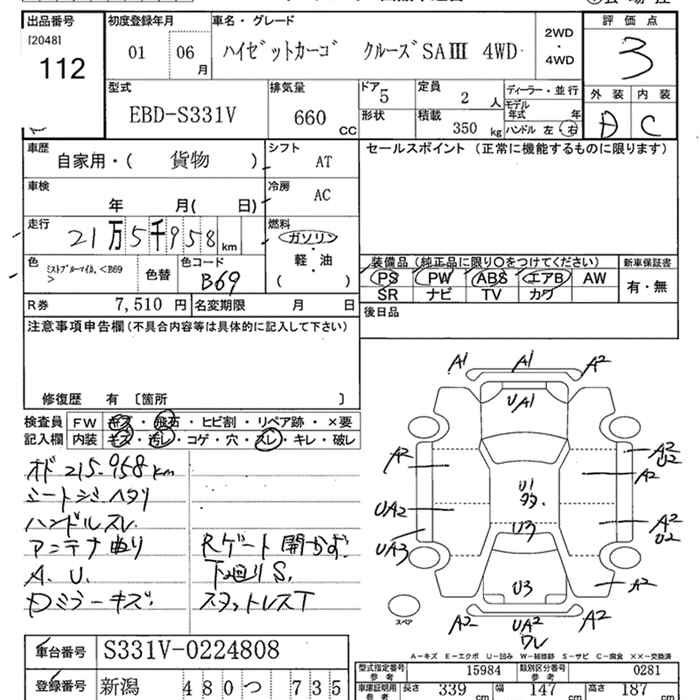 出品番号 初度登録年月 車名・グレード 評価点
[2048]
112 01 06月 ハイゼットカーゴ クルーズSAⅢ 4WD 2WD・4WD 3
外装 内装
D C
型式 排気量 ドア 定員 ディーラー・並行
EBD-S331V 660cc 5 2人 モデル年式 年
形状 積載 350kg ハンドル 左・右
車歴 シフト セールスポイント (正常に機能するものに限ります)
自家用・( 貨物 ) AT
車検 冷房
年 月( 日) AC
走行 燃料
21万5千958km ガソリン・軽・油
( )
色 色替 色コード
ミストブルーマイカ、<B69> B69
装備品 (純正品に限り〇をつけてください) 新車保証書
PS PW ABS エアB AW 有・無
SR ナビ TV カワ
R券 7,510円 名変期限 月 日 後日品
注意事項申告欄(不具合内容等は具体的に記入して下さい)
修復歴 有 〔箇所 〕
検査員 FW キズ・飛石・ヒビ割・リペア跡・×要
記入欄 内装 キズ・汚レ・コゲ・穴・スレ・キレ・破レ
オド215.958km
シートシミヘタリ
ハンドルスレ
アンテナ曲り Rゲート開かず
A.U. 下廻りS.
Dミラーキズ スタットレスT
A1 A1 A2
UA1
A2 A2 U2
A2
U1
UA2 A2 U2
UA3 U3
U3 A2
スペア A2 UA2 A2
A-キズ E-エクボ U-凹み W-補修跡 S-サビ C-腐食 ××-交換済
車台番号 S331V-0224808
登録番号 新潟 480つ 735
型式指定番号 参考 15984 類別区分番号 参考 0281
車庫証明用 参考 長さ 339cm 幅 147cm 高さ 187cm